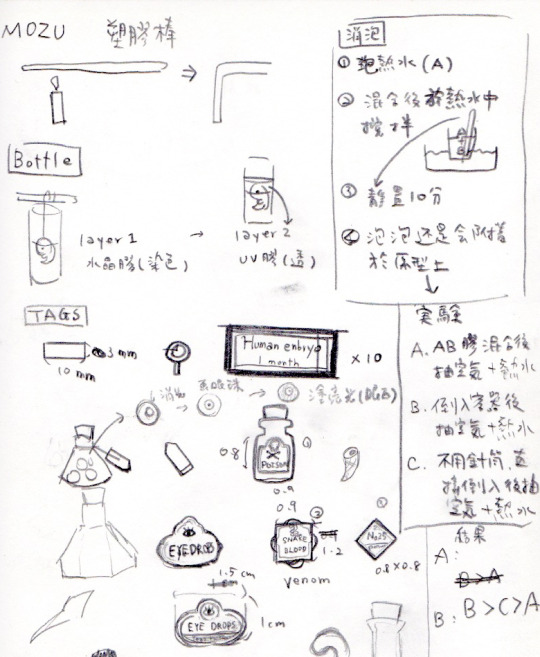 MOZU 塑膠棒
消泡
① 泡熱水(A)
② 混合後於熱水中
攪拌
A
B
③ 靜置10分
④ 泡泡還是会附著
於原型上
Bottle
layer 1
水晶膠(染色)
layer 2
UV膠(透)
TAGS
3 mm
10 mm
Human embryo
1 month
x 10
实験
A. AB膠混合後
抽空氣+熱水
B. 倒入容器後
抽空氣+熱水
C. 不用針筒, 直
接倒入後抽
空氣+熱水
0.8
POISON
①
0.9
EYE DROPS
0.9
②
SNAKE
BLOOD
1.2
venom
No25
0.8 x 0.8
1.5 cm
EYE DROPS
1 cm
結果
A:
B>A
B: B>C>A